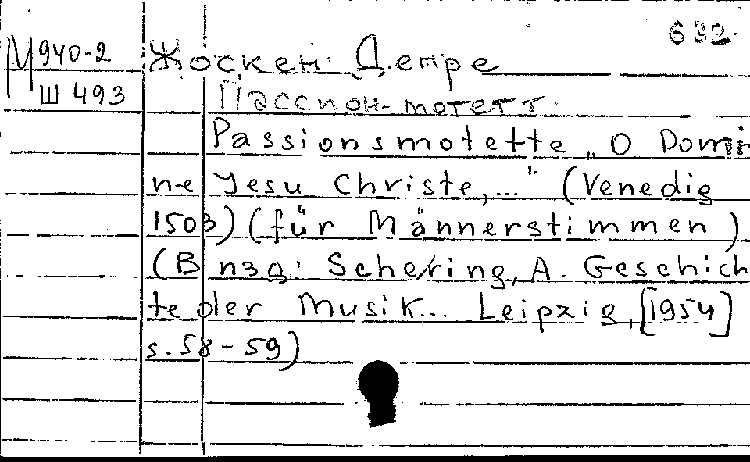 632
М 940-2
Ш 493
Жоскен Депре
Пассион-мотетт.
Passionsmotette „O Domi
ne Jesu Christe,..." (Venedig
1503) (für Männerstimmen)
(В изд: Schering, A. Geschich
te der Musik... Leipzig, [1954]
s. 58-59)